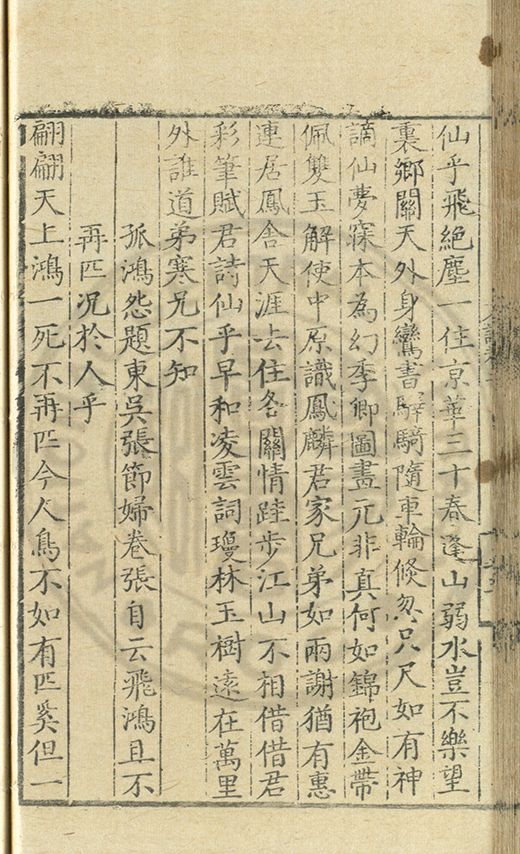 仙乎飛絶塵一住京華三十春逢山弱水豈不樂望
裏鄉關天外身鸞書驛騎隨車輪倐忽只尺如有神
謫仙夢寐本為幻李卿圖畫元非真何如錦袍金帶
佩雙玉觧使中原識鳳麟君家兄弟如兩謝猶有惠
連居鳳舎天涯去住各關情跬步江山不相借借君
彩筆賦君詩仙乎早和凌雲詞瓊林玉樹遠在萬里
外誰道弟寒兄不知
孤鴻怨題東吳張節婦卷張自云飛鴻且不
再匹况於人乎
翩翩天上鴻一死不再匹今人鳥不如有匹奚但一